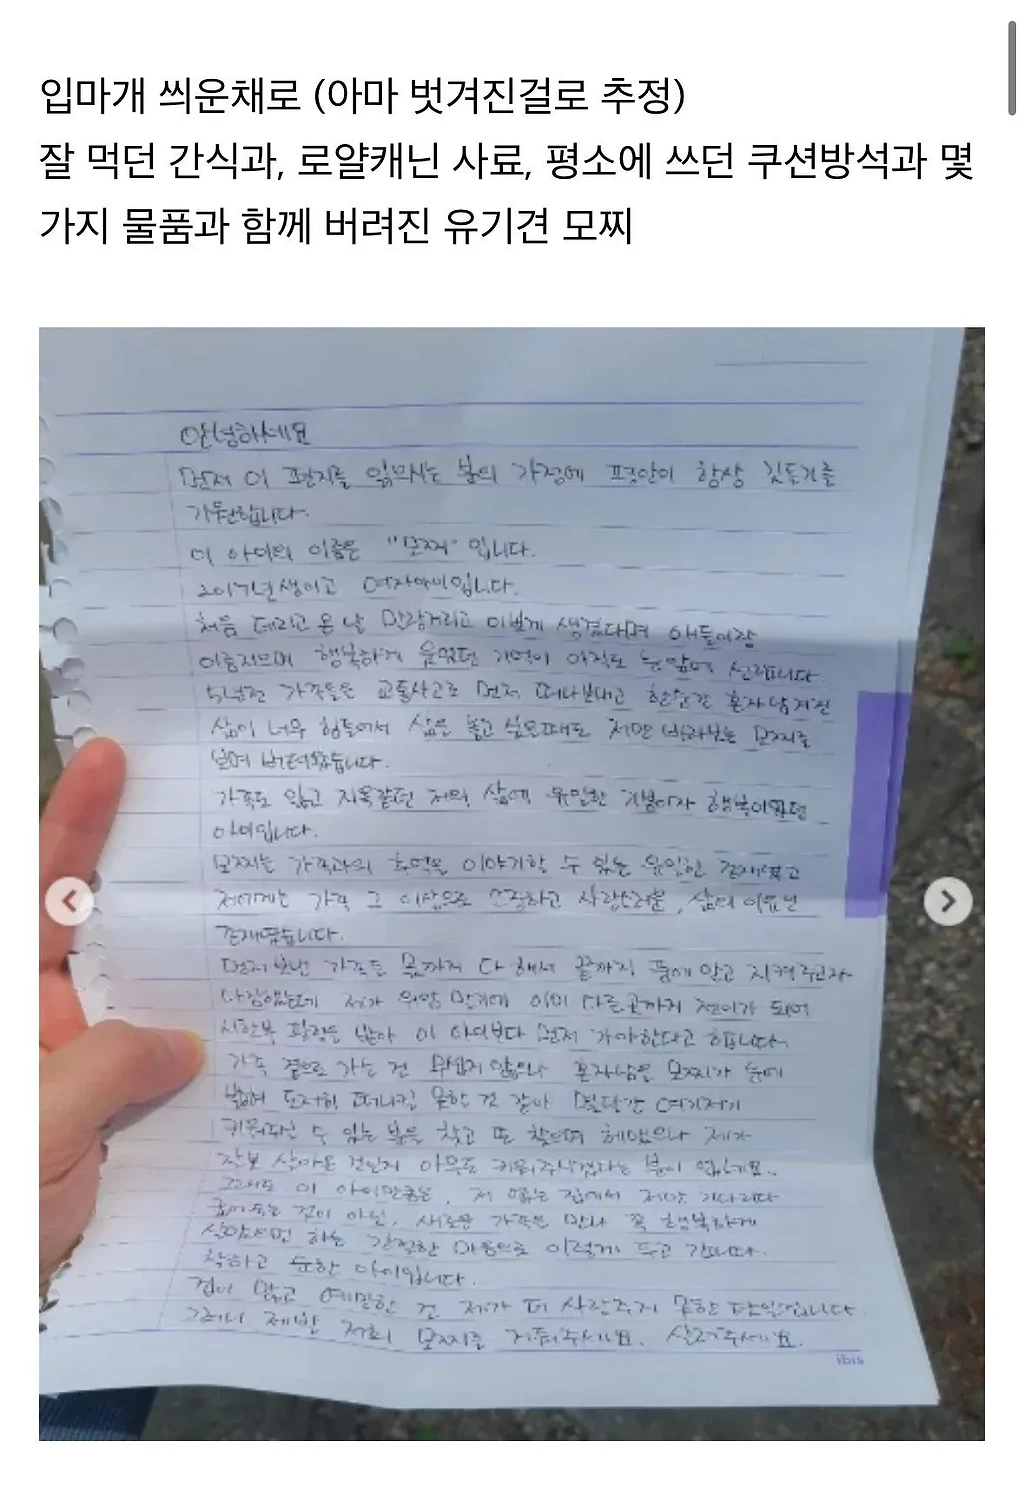 입마개 씌운채로 (아마 벗겨진걸로 추정)
잘 먹던 간식과, 로얄캐닌 사료, 평소에 쓰던 쿠션방석과 몇
가지 물품과 함께 버려진 유기견 모찌
안녕하세요
먼저 이 편지를 읽으시는 분의 가정에 평안이 항상 깃들기를
기원합니다.
이 아이의 이름은 "모찌" 입니다.
2017년생이고 여자아이입니다.
처음 데리고 온 날 말랑거리고 이쁘게 생겼다며 애들이랑
이름지으며 행복하게 웃었던 기억이 아직도 눈앞에 선합니다.
5년전 가족들은 교통사고로 먼저 떠나보내고 한순간 혼자남겨진
삶이 너무 힘들어서 삶을 놓고 싶을때도 저만 바라보는 모찌를
보며 버텨왔습니다.
가족도 잃고 지옥같던 저의 삶에 유일한 기쁨이자 행복이였던
아이입니다.
모찌는 가족과의 추억을 이야기할 수 있는 유일한 존재였고
저에게는 가족 그 이상으로 소중하고 사랑스러운, 삶의 이유인
존재였습니다.
먼저보낸 가족들 몫까지 다해서 끝까지 품에 안고 지켜주고자
다짐했는데 제가 위암 말기에 이미 다른곳까지 전이가 되어
시한부 판정을 받아 이 아이보다 먼저 가야한다고 합니다.
가족 곁으로 가는 건 무섭지 않으나 혼자남을 모찌가 눈에
밟혀 도저히 떠나질 못할 것 같아 몇달간 여기저기
키워주실 수 있는 분을 찾고 또 찾으며 헤맸으나 제가
잘못 살아온 것인지 아무도 키워주시겠다는 분이 없네요.
그래도 이 아이만큼은, 저 없는 집에서 저만 기다리다
굶어죽는 것이 아닌, 새로운 가족을 만나 꼭 행복하게
살았으면 하는 간절한 마음으로 이렇게 두고 갑니다.
착하고 순한 아이입니다.
겁이 많고 예민한 건 제가 더 사랑주지 못한 탓입니다.
그러니 제발 저희 모찌를 거둬주세요. 살려주세요.
ibis